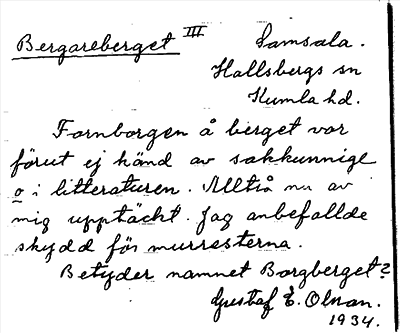 Bergareberget III
Samsala.
Hallsbergs sn
Kumla hd.
Fornborgen å berget var
förut ej känd av sakkunnige
o i litteraturen. Alltså nu av
mig upptäckt. Jag anbefallde
skydd för murresterna.
Betyder namnet Borgberget?
Gustaf E. Olsson.
1934.